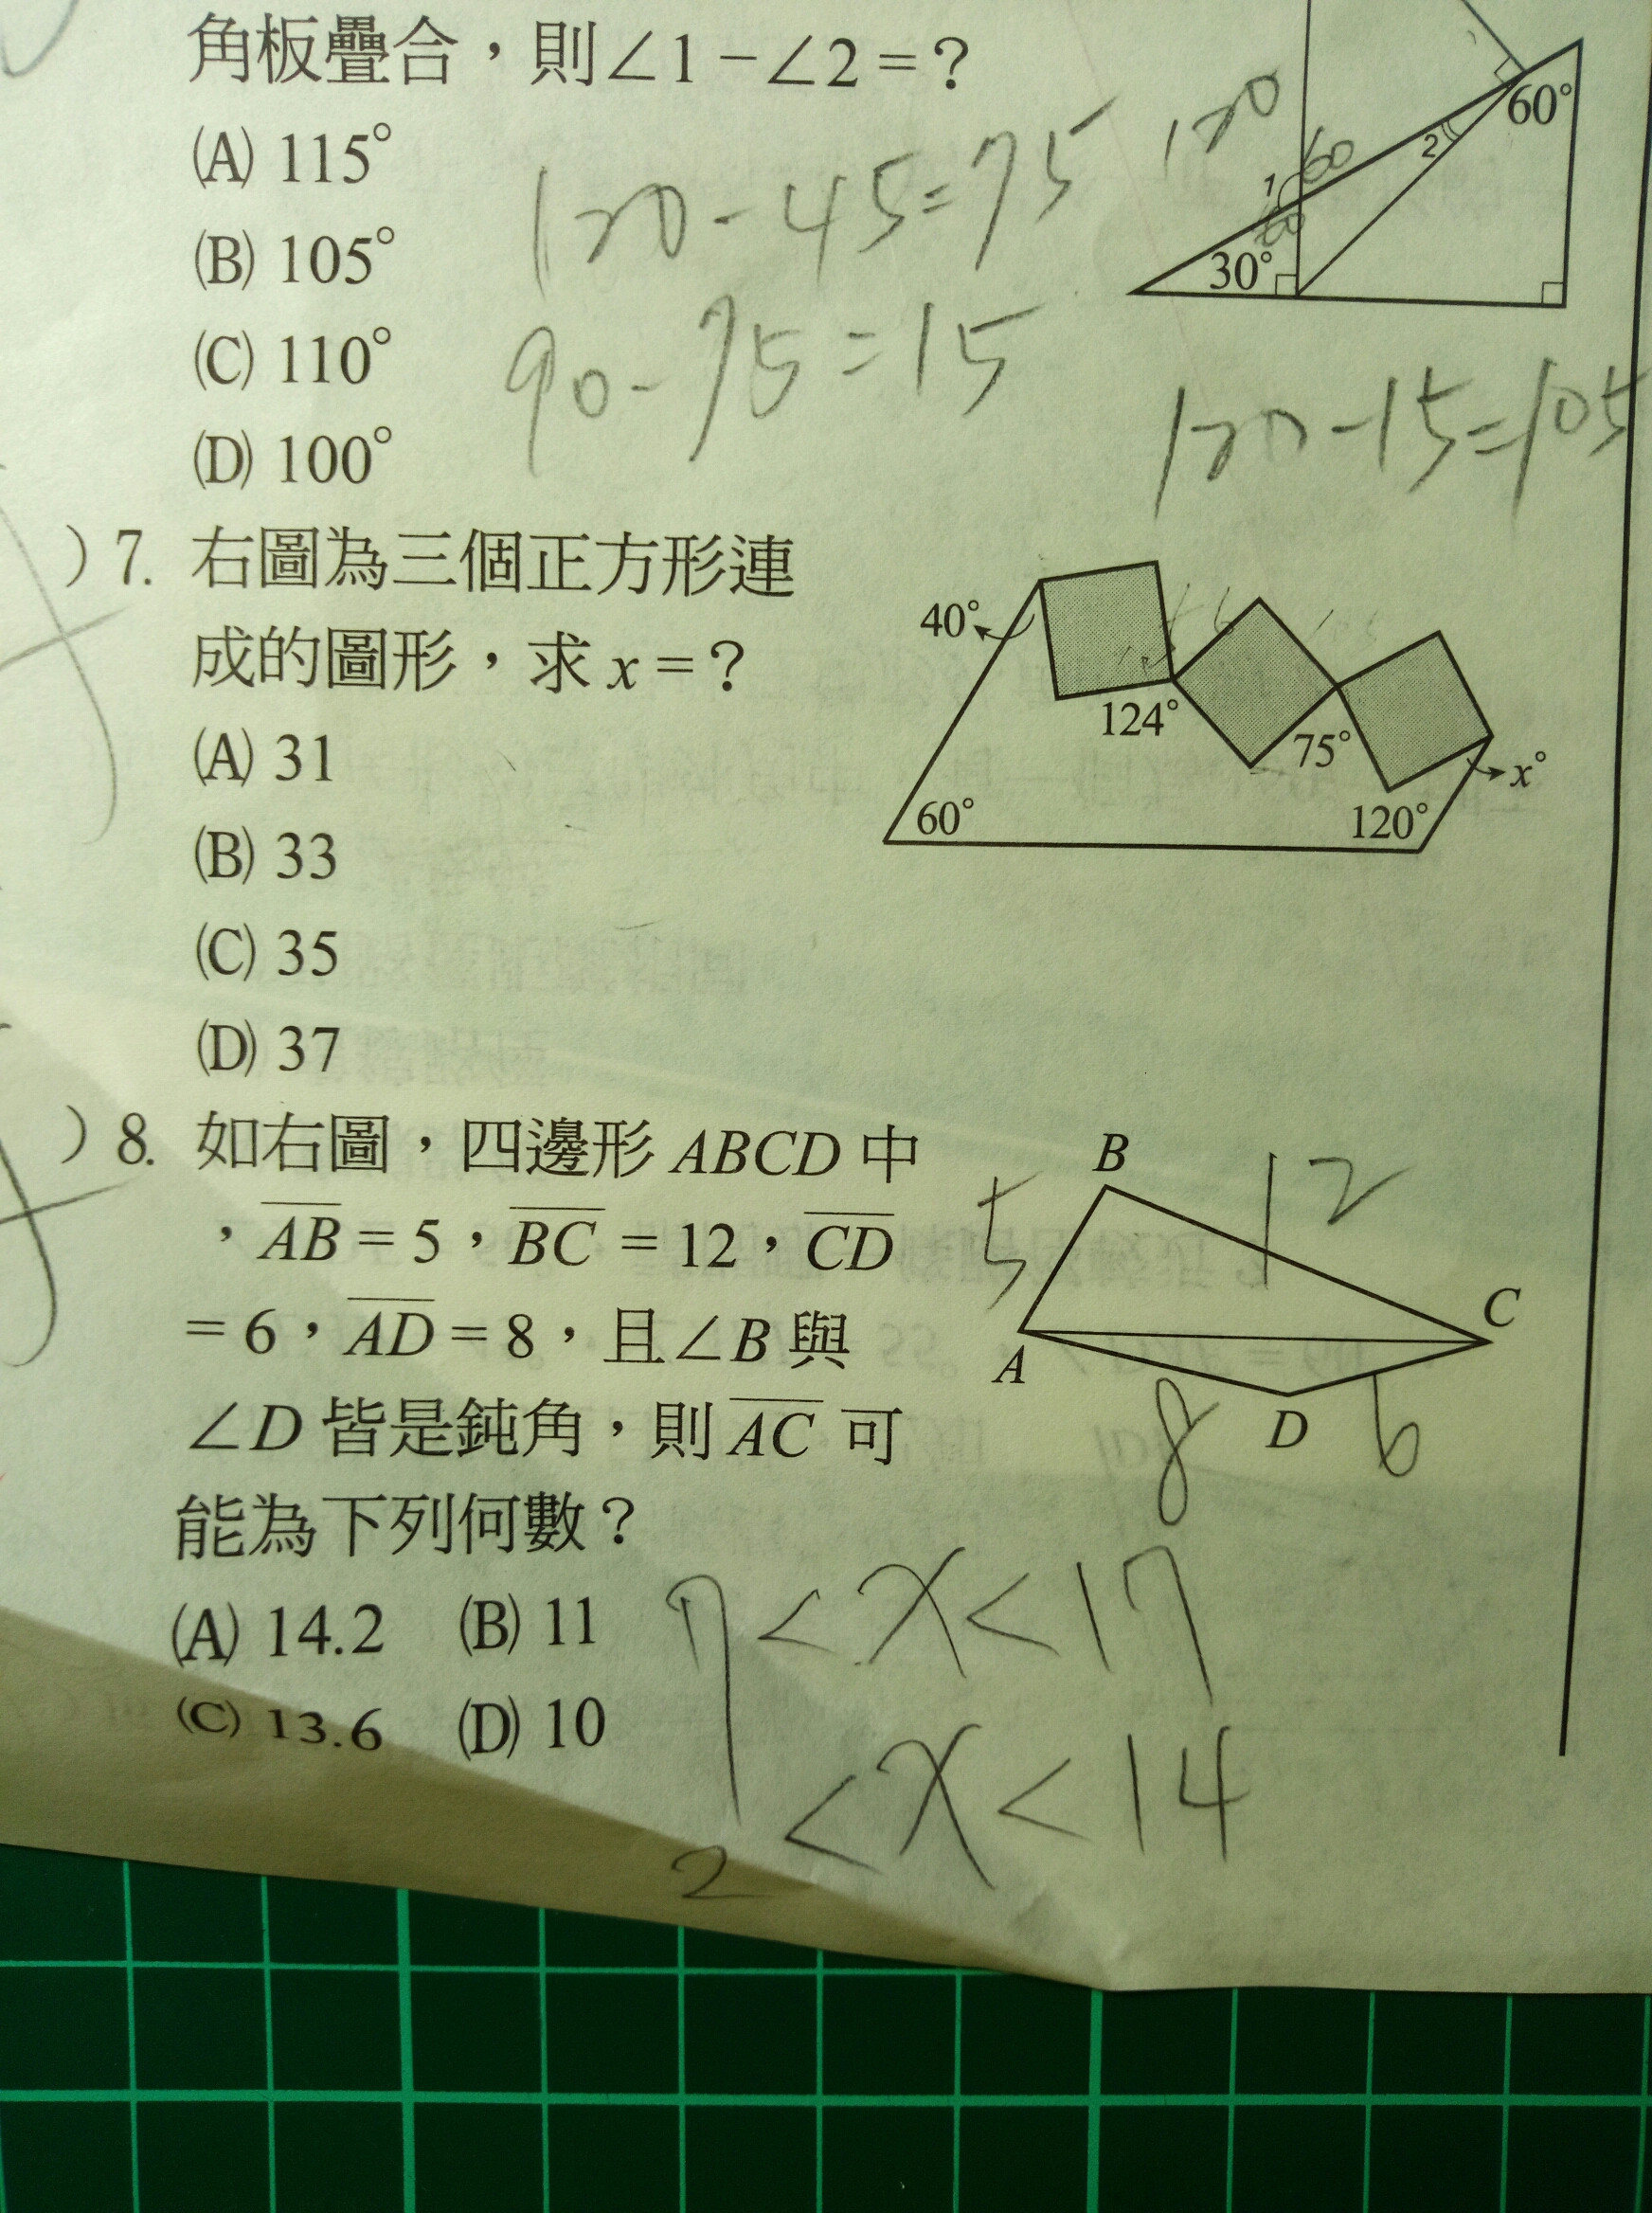 角板疊合，則∠1－∠2＝？
(A) 115°
(B) 105°
(C) 110°
(D) 100°
120-45=75
90-75=15
120
60
1
2
60°
30°
120-15=105
)7. 右圖為三個正方形連
成的圖形，求 x＝？
(A) 31
(B) 33
(C) 35
(D) 37
40°
124°
75°
x°
60°
120°
)8. 如右圖，四邊形 ABCD 中
，AB＝5，BC＝12，CD
＝6，AD＝8，且∠B 與
∠D 皆是鈍角，則 AC 可
能為下列何數？
(A) 14.2 (B) 11
(C) 13.6 (D) 10
B
12
5
C
A
8
D
6
7<x<17
2<x<14